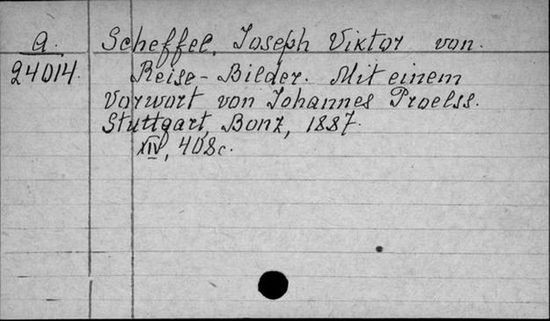 a. Scheffel, Joseph Viktor von.
24014. Reise-Bilder. Mit einem
Vorwort von Johannes Proelss.
Stuttgart, Bonz, 1887.
XIV, 408c.